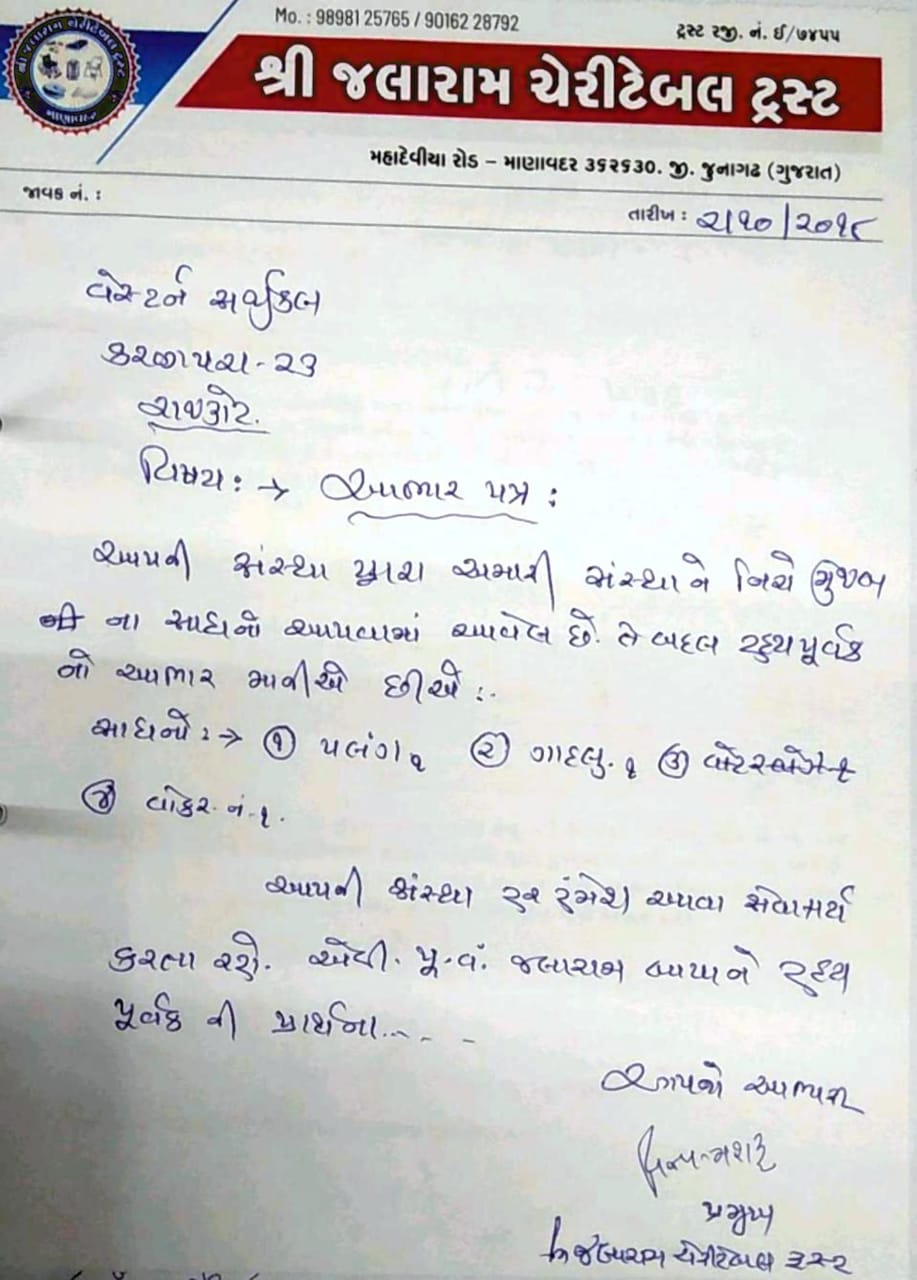 Mo. : 98981 25765 / 90162 28792
ટ્રસ્ટ રજી. નં. ઈ/૭૪૫૫
શ્રી જલારામ ચેરીટેબલ ટ્રસ્ટ
મહાદેવીયા રોડ – માણાવદર ૩૬૨૬૩૦. જી. જુનાગઢ (ગુજરાત)
જાવક નં. :
તારીખ : ૨/૧૦/૨૦૧૮
વેસ્ટર્ન સર્જીકલ
કરણપરા - ૨૩
રાજકોટ.
વિષય : → આભાર પત્ર :
આપની સંસ્થા દ્વારા અમારી સંસ્થાને નિચે મુજબ
ના સાધનો આપવામાં આવેલ છે. તે બદલ હ્રદય પૂર્વક
નો આભાર માનીએ છીએ :.
સાધનો : → ① પલંગ ૧ ② ગાદલુ. ૧ ③
④ વોકર નં - ૧.
આપની સંસ્થા હંમેશ આવા સેવાકાર્ય
કરતા રહો. એવી પૂ. જલારામ બાપાને હ્રદય
પૂર્વક ની પ્રાર્થના...
આપનો આભારી
પ્રમુખ
શ્રી જલારામ ચેરીટેબલ ટ્રસ્ટ